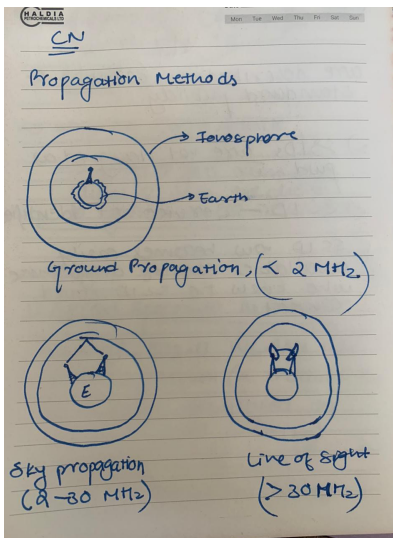 HALDIA
PETROCHEMICALS LTD
Mon Tue Wed Thu Fri Sat Sun
CN
Propagation Methods
Ionosphere
Earth
Ground Propagation, (< 2 MHz)
E
Sky propagation
(2-30 MHz)
Line of sight
(> 30 MHz)